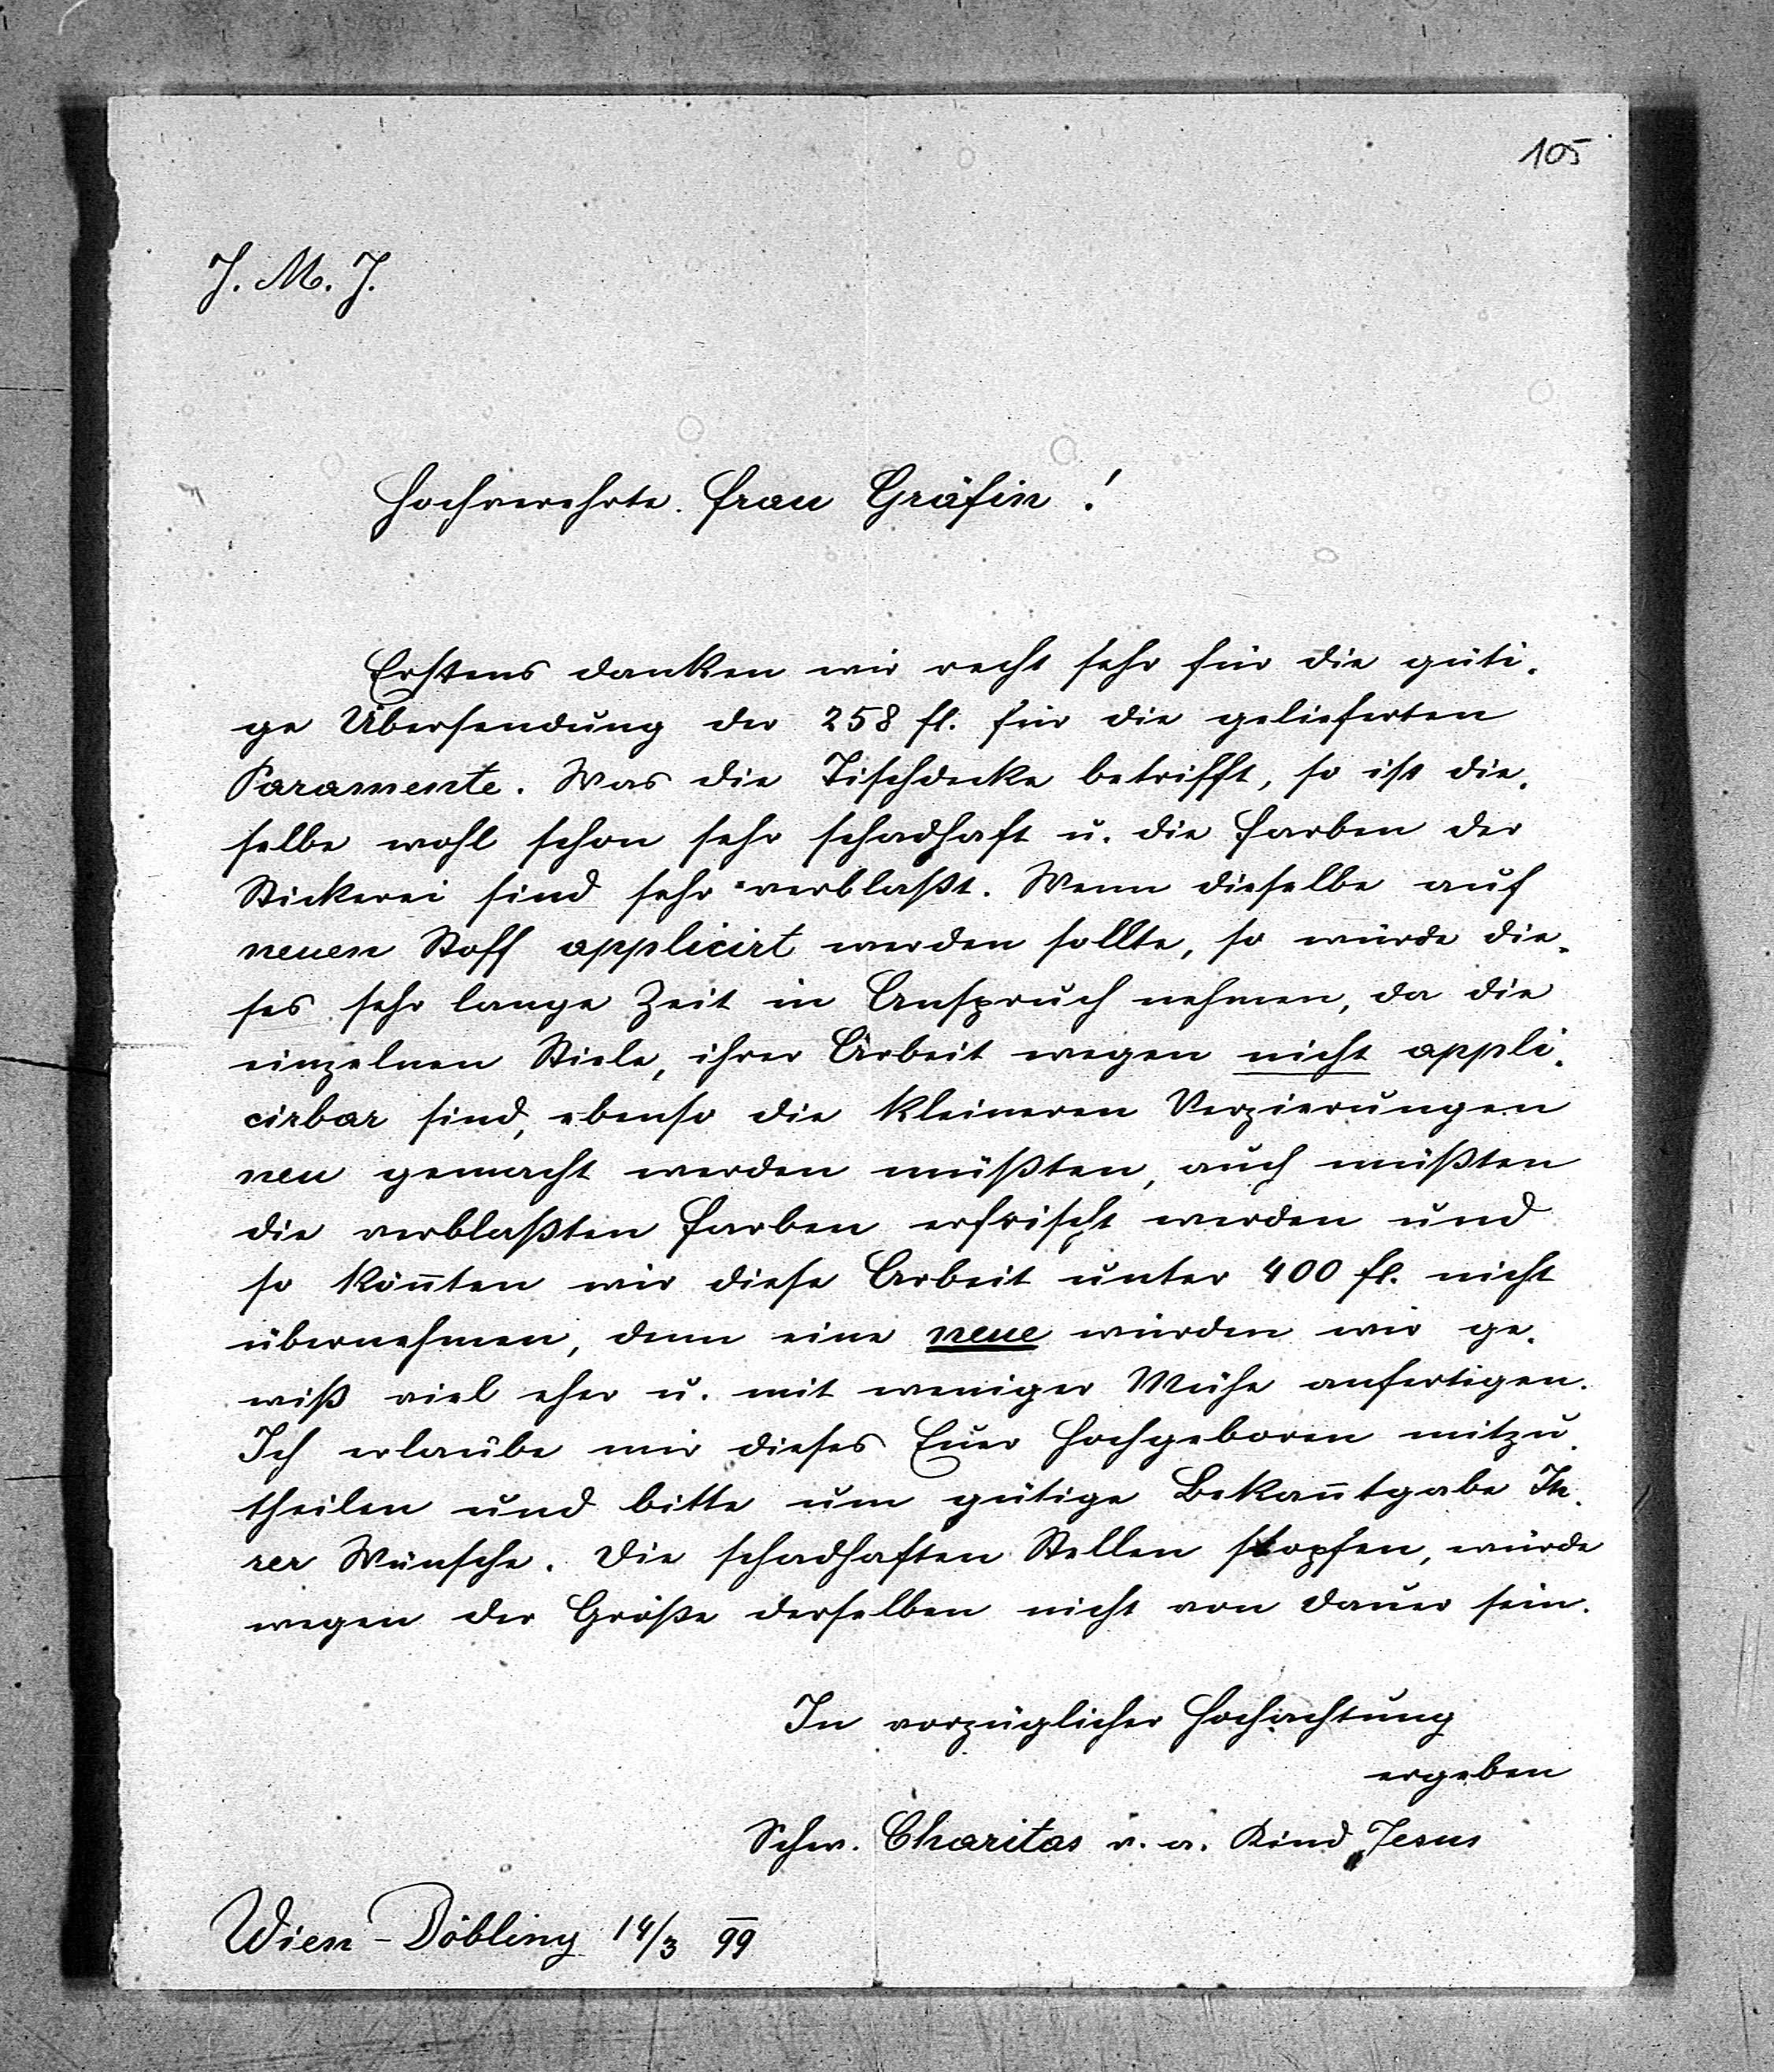 105
J. M. J.
Hochverehrte Frau Gräfin!
Erstens danken wir recht sehr für die güti-
ge Übersendung der 258 fl. für die gelieferten
Paramente. Was die Tischdecke betrifft, so ist die-
selbe wohl schon sehr schadhaft u. die Farben der
Stickerei sind sehr verblaßt. Wenn dieselbe auf
neuen Stoff applicirt werden sollte, so würde die-
ses sehr lange Zeit in Anspruch nehmen, da die
einzelnen Stiele, ihrer Arbeit wegen nicht appli-
cirbar sind, ebenso die kleineren Verzierungen
neu gemacht werden müßten, auch müßten
die verblaßten Farben erfrischt werden und
so kön̄ten wir diese Arbeit unter 400 fl. nicht
übernehmen, denn eine neue würden wir ge-
wiß viel eher u. mit weniger Mühe anfertigen.
Ich erlaube mir dieses Euer Hochgeboren mitzu-
theilen und bitte um gütige Bekan̄tgabe Ih-
rer Wünsche. Die schadhaften Stellen stopfen, würde
wegen der Größe derselben nicht von Dauer sein.
In vorzüglicher Hochachtung
ergeben
Schw. Charitas v. a. Kind Jesus
Wien-Döbling 14/3 99